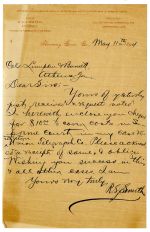 May 11th 1904
Col Lumpkin & Burnett
Athens Ga
Dear Sirs:
Yours of yesterday
just received & request noted
I herewith enclose you check
for $10.00 to cover costs in
court in my case vs
Western
Union Telegraph Co. Please acknowl
receipt of same, & oblige
Wishing you success in this
& all other cases, I am
Yours Very Truly
Smith